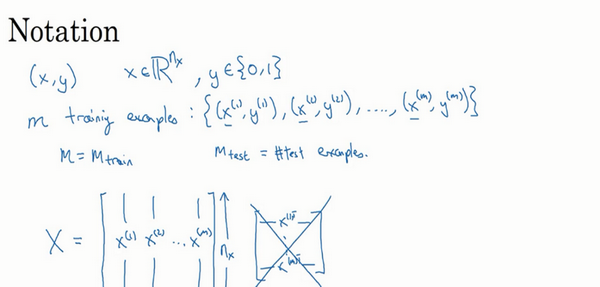 Notation
(x,y) x∈ℝⁿˣ, y∈{0,1}
m training examples : {(x⁽¹⁾,y⁽¹⁾), (x⁽²⁾,y⁽²⁾), ...., (x⁽ᵐ⁾,y⁽ᵐ⁾)}
M = M train M test = #test examples.
X = [ x⁽¹⁾ x⁽²⁾ ... x⁽ᵐ⁾ ] nₓ x⁽¹⁾ᵀ
x⁽ᵐ⁾ᵀ